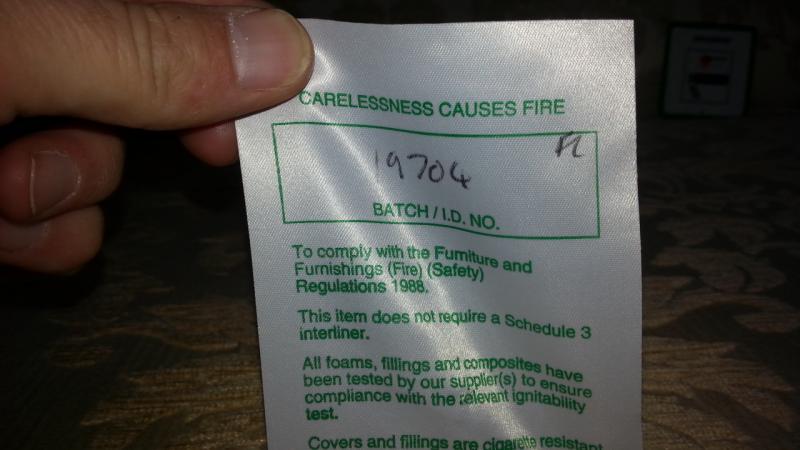 CARELESSNESS CAUSES FIRE
19704
FL
BATCH / I.D. NO.
To comply with the Furniture and
Furnishings (Fire) (Safety)
Regulations 1988.
This item does not require a Schedule 3
interliner.
All foams, fillings and composites have
been tested by our supplier(s) to ensure
compliance with the relevant ignitability
test.
Covers and fillings are cigarette resistant